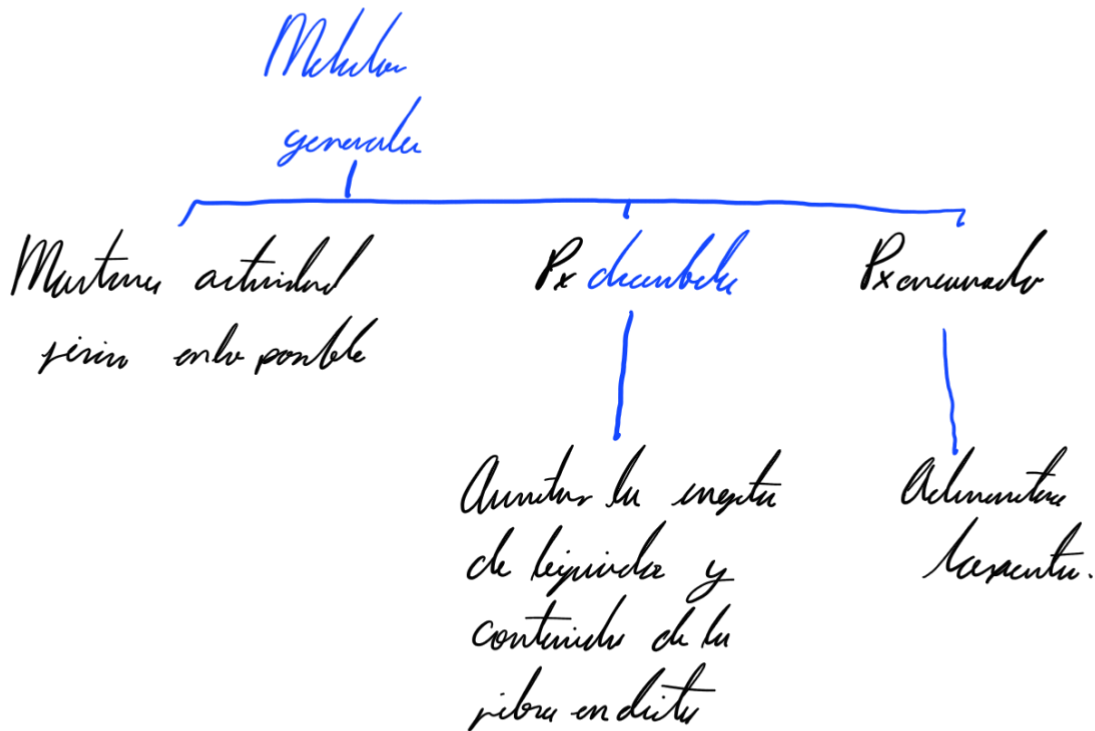 Medidas
generales
Mantener actividad
física en lo posible
Px deambula
Px encamado
Aumentar la ingesta
de líquidos y
contenido de la
fibra en dieta
Administrar
laxante.